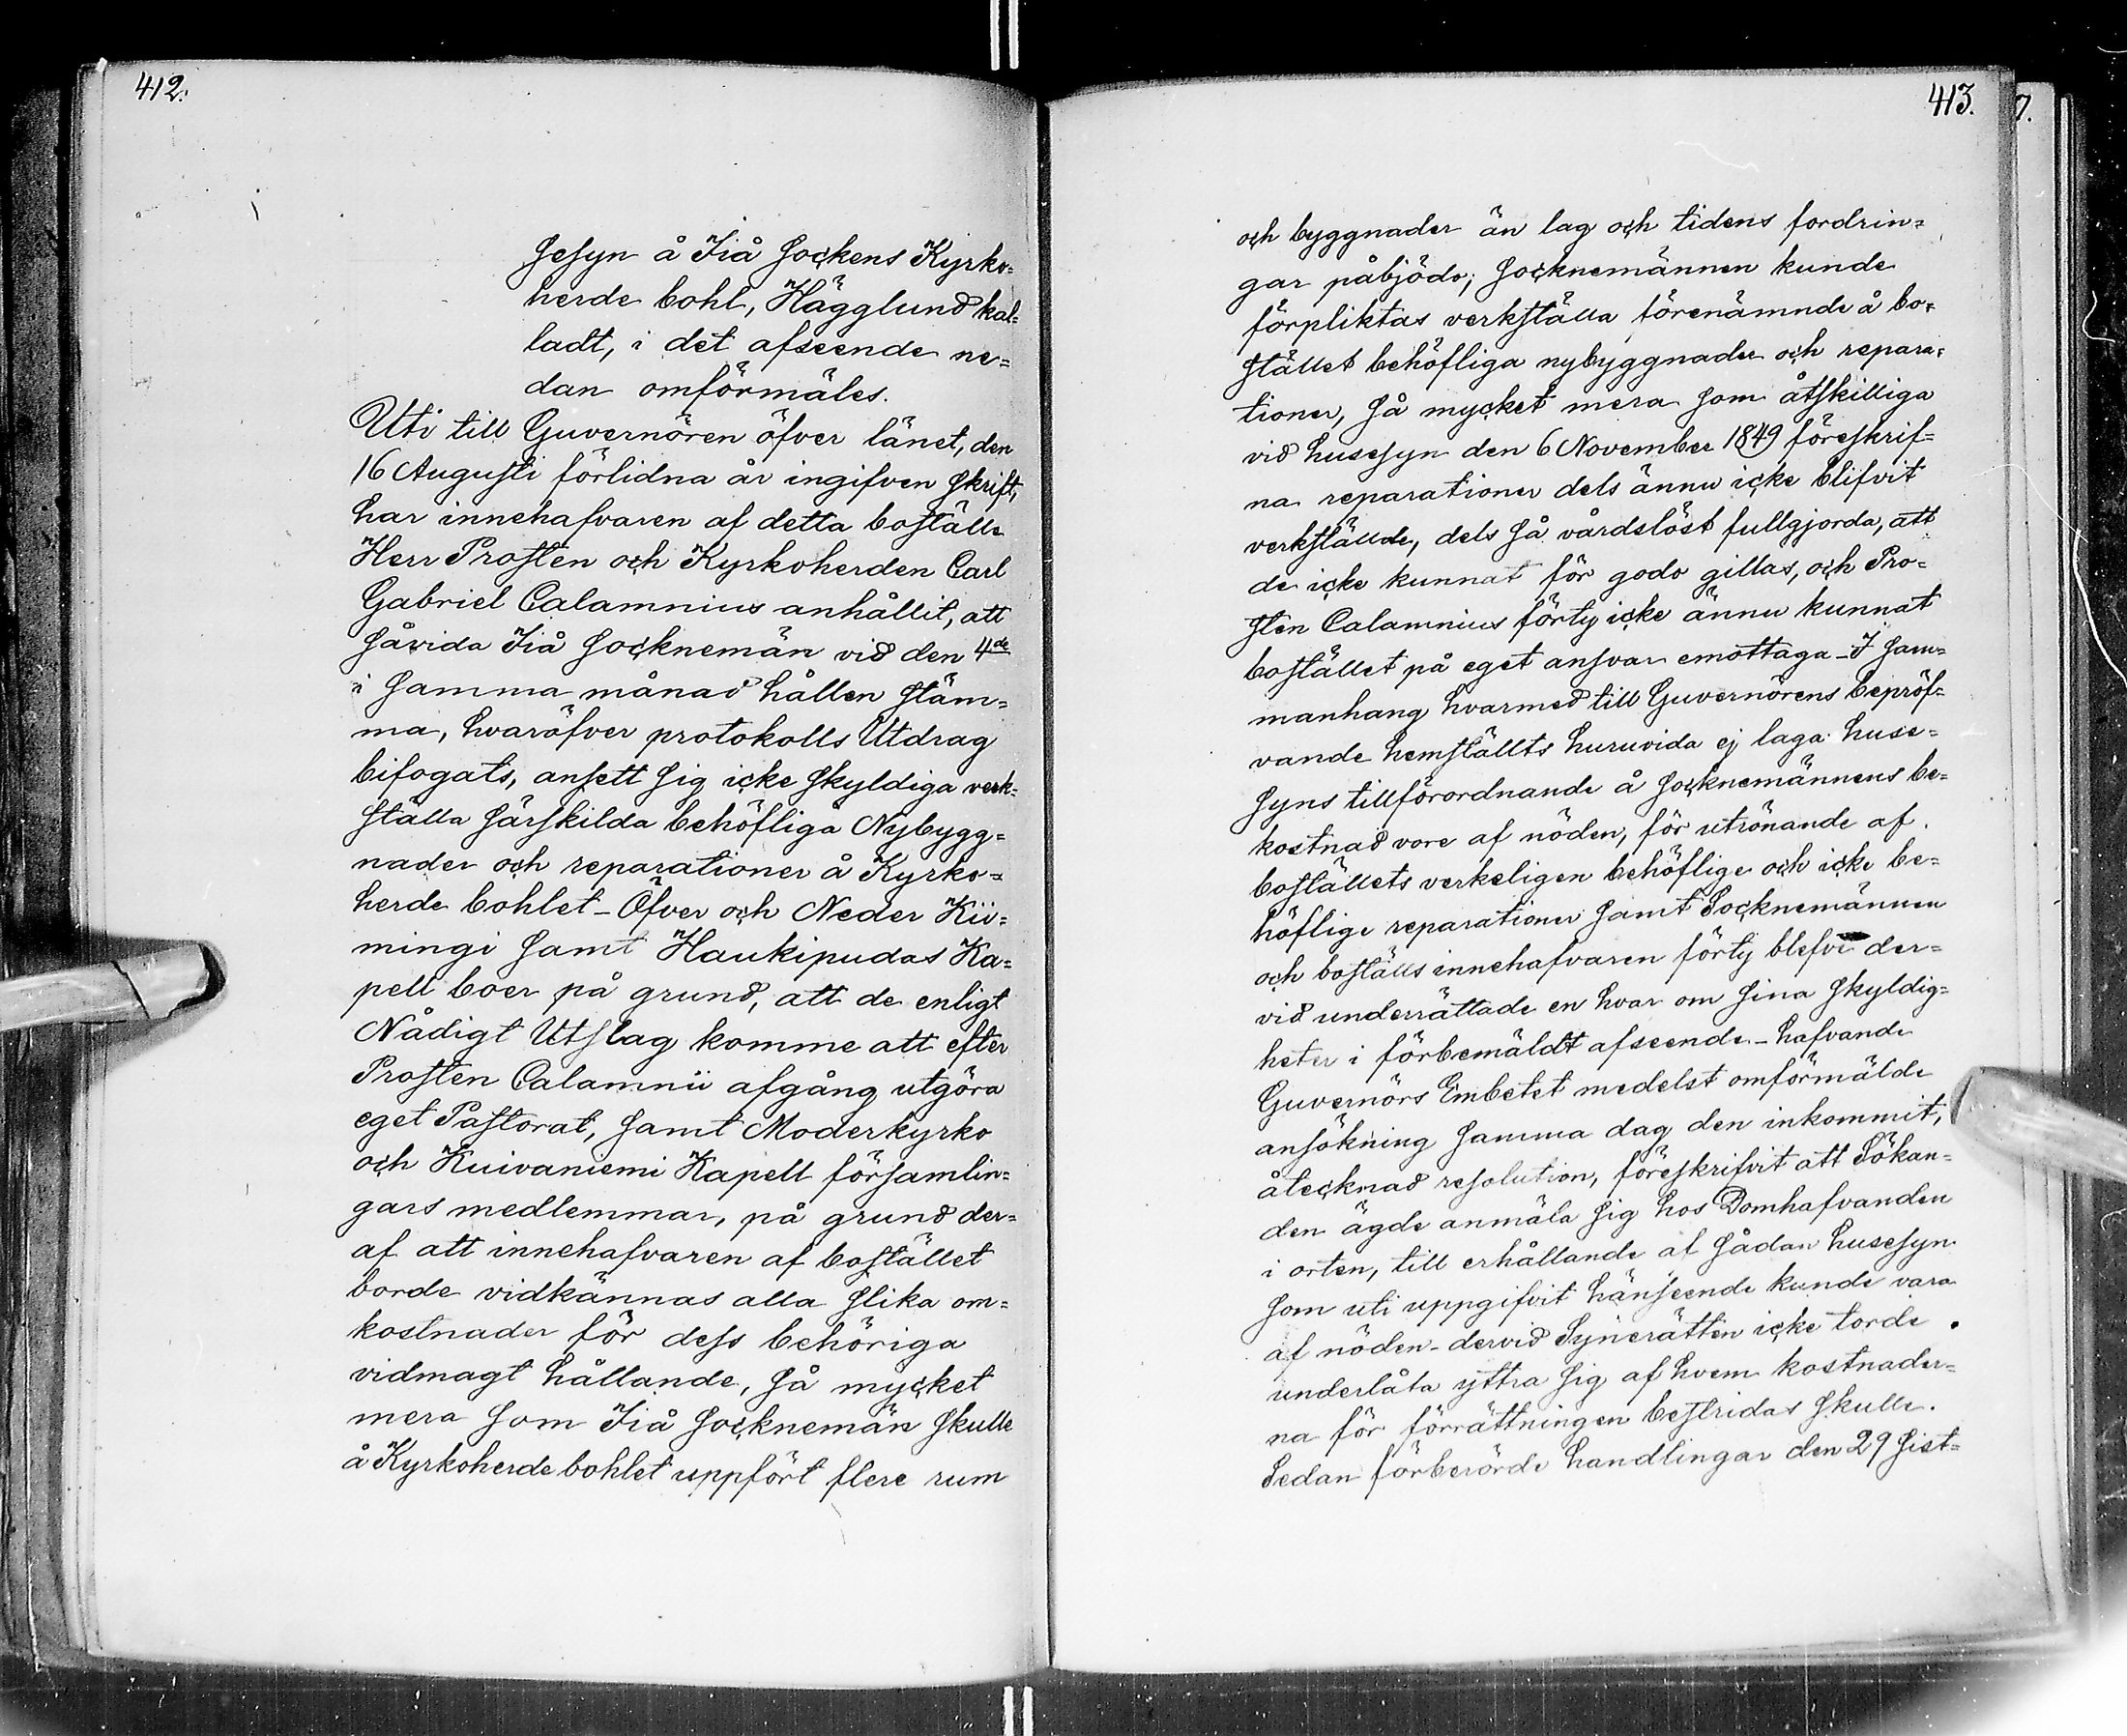 412.
sesyn å Iiå Sockens Kyrko=
herde bohl, Hägglund kal=
ladt, i det afseende ne=
dan omförmäles.
Uti till Guvernören öfver länet, den
16 Augusti förlidna år ingifven skrift,
har innehafvaren af detta boställe
Herr Prosten och Kyrkoherden Carl
Gabriel Calamnius anhållit, att
såvida Iiå Socknemän vid den 4de
i samma månad hållen stäm=
ma, hvaröfver protokolls Utdrag
bifogats, ansett sig icke skyldiga verk=
ställa särskilda behöfliga Nybygg=
nader och reparationer å Kyrko=
herde bohlet - Öfver och Neder Kii=
mingi samt Haukipudas Ka=
pell boer på grund, att de enligt
Nådigt Utslag komme att efter
Prosten Calamnii afgång utgöra
eget Pastorat, samt Moderkyrko
och Kuivaniemi Kapell församlin=
gars medlemmar, på grund der=
af att innehafvaren af bostället
borde vidkännas alla slika om=
kostnader för dess behöriga
vidmagt hållande, så mycket
mera som Iiå Socknemän skulle
å Kyrkoherde bohlet uppfört flere rum
413.
7.
och byggnader än lag och tidens fordrin=
gar påbjödo; Socknemännen kunde
förpliktas verkställa förenämnde å bo=
stället behöfliga nybyggnader och repara=
tioner, så mycket mera som åtskilliga
vid husesyn den 6 November 1849 föreskrif=
na reparationer dels ännu icke blifvit
verkställde, dels så vårdslöst fullgjorda, att
de icke kunnat för godo gillas, och Pro=
sten Calamnius förty icke ännu kunnat
bostället på eget ansvar emottaga - I sam=
manhang hvarmed till Guvernörens bepröf=
vande hemställts huruvida ej laga huse=
syns tillförordnande å Socknemännens be=
kostnad vore af nöden, för utrönande af
boställets verkeligen behöflige och icke be=
höflige reparationer samt Socknemännen
och boställs innehafvaren förty blefve der=
vid underrättade en hvar om sina skyldig=
heter i förbemäldt afseende - hafvande
Guvernörs Embetet medelst omförmälde
ansökning samma dag den inkommit,
åtecknad resolution, föreskrifvit att Sökan=
den ägde anmäla sig hos Domhafvanden
i orten, till erhållande af sådan husesyn
som uti uppgifvit hänseende kunde vara
af nöden - dervid Synerätten icke torde
underlåta yttra sig af hvem kostnader=
na för förrättningen bestridas skulle.
Sedan förberörde handlingar den 29 sist=